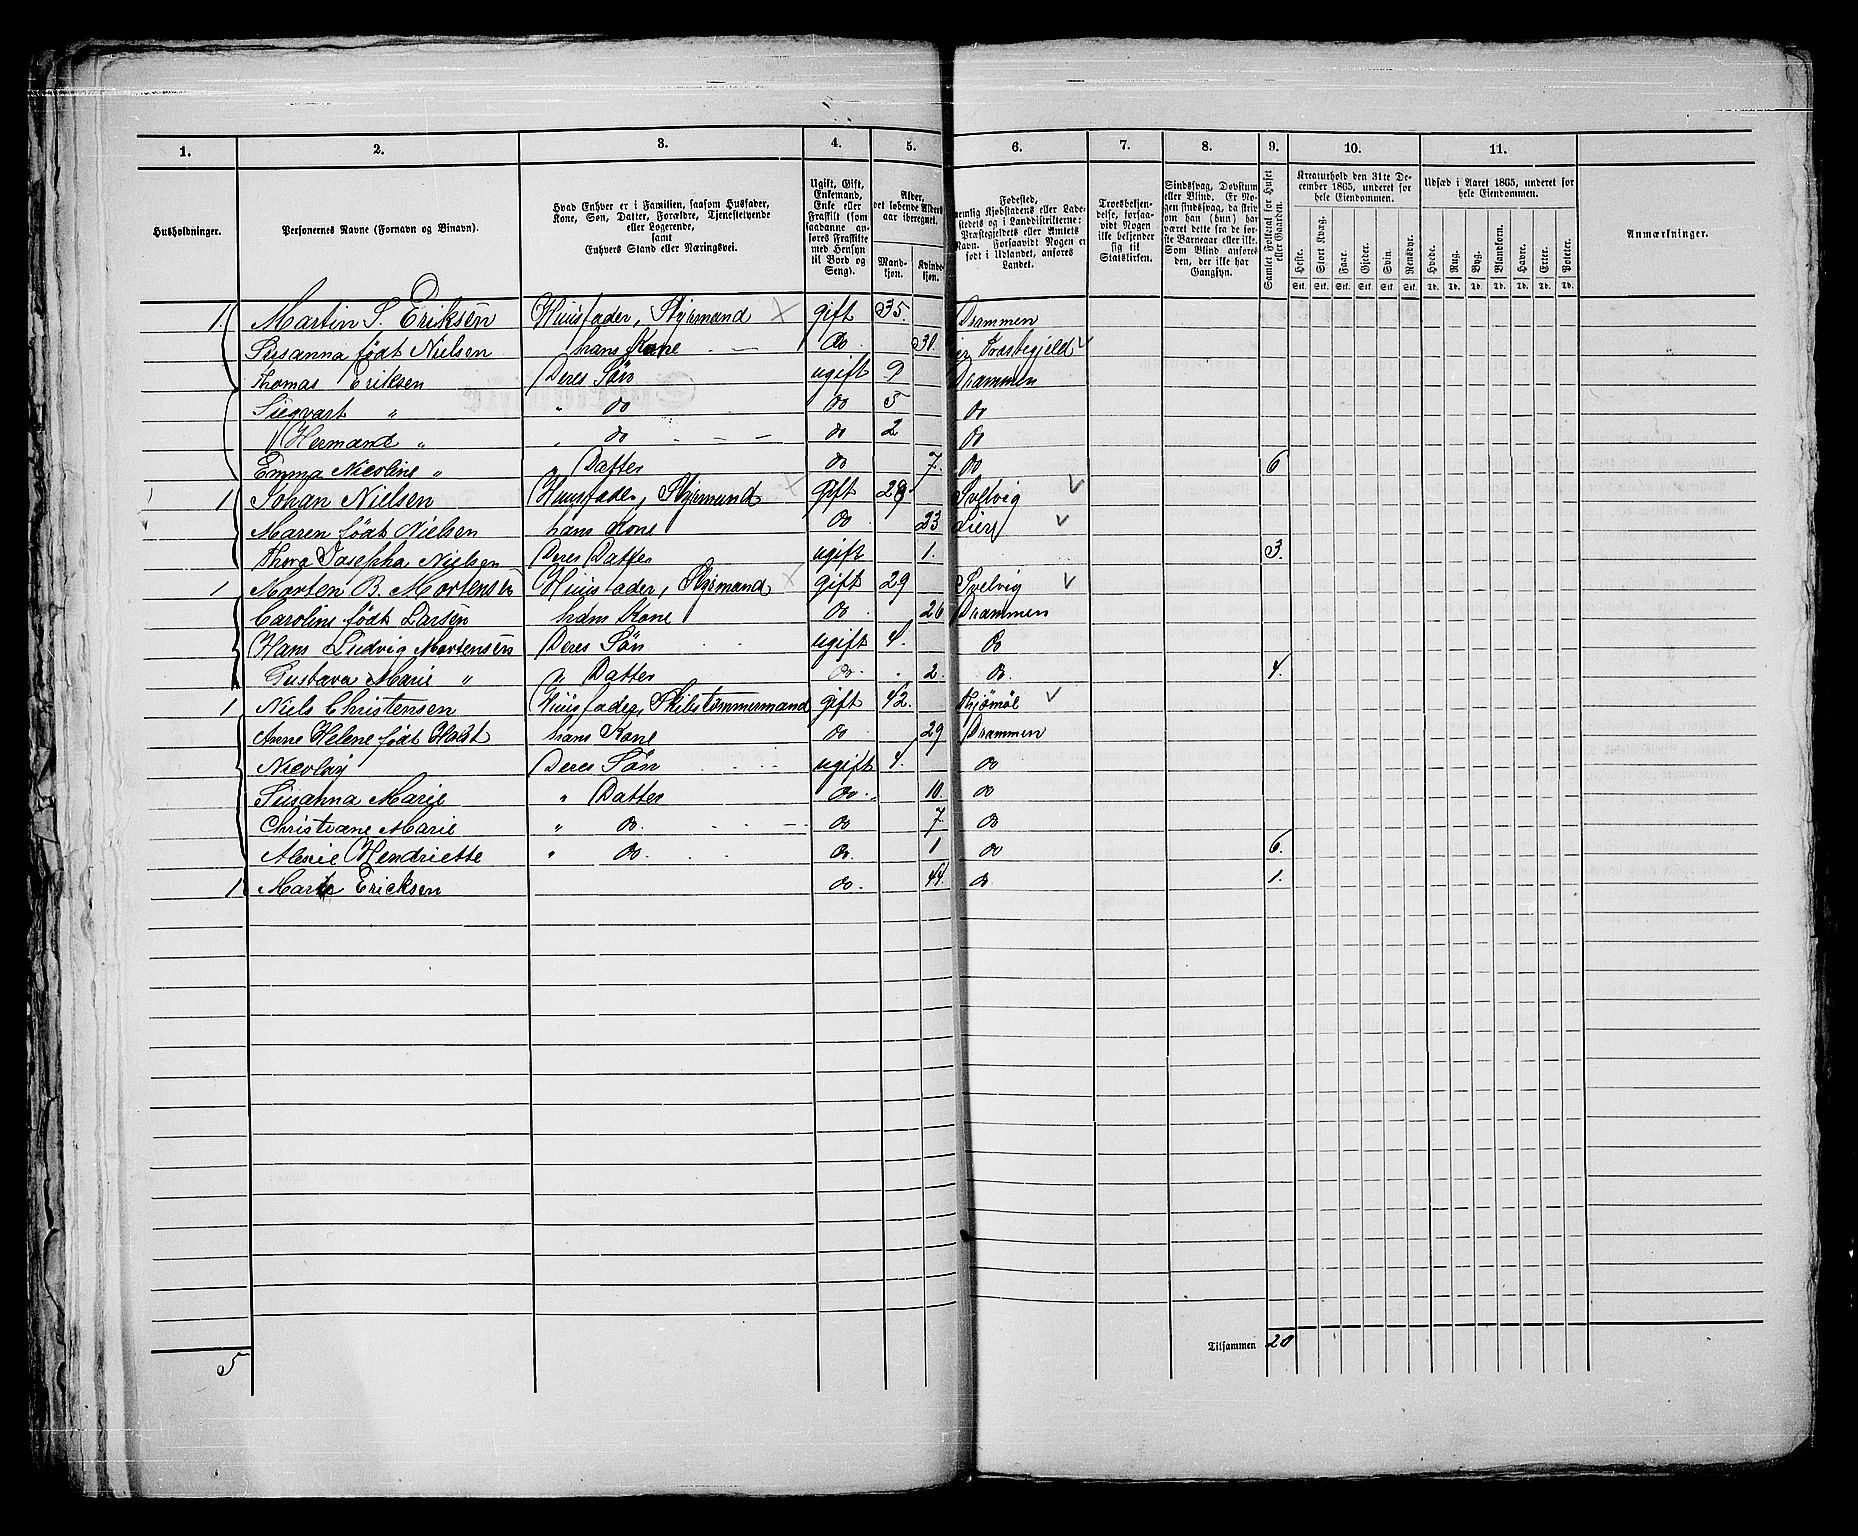 1. 2. 3. 4. 5. 6. 7. 8. 9. 10. 11.
Husholdninger.
Personernes Navne (Fornavn og Binavn).
Hvad Enhver er i Familien, saasom Husfader,
Kone, Søn, Datter, Forældre, Tjenestetyende
eller Logerende,
samt
Enhvers Stand eller Næringsvei.
Ugift, Gift,
Enkemand,
Enke eller
Fraskilt (som
saadanne an-
føres Fraskilte
med Hensyn
til Bord og
Seng).
Alder,
det løbende Alders-
aar iberegnet.
Mand-
kjøn.
Kvinde-
kjøn.
Fødested,
nemlig Kjøbstadens eller Lade-
stedets og i Landdistrikterne:
Præstegjeldets eller Amtets
Navn. Forsaavidt Nogen er
født i Udlandet, anføres
Landet.
Troesbekjen-
delse, forsaa-
vidt Nogen
ikke bekjender
sig til
Statskirken.
Sindssvag, Døvstum
eller Blind. Er No-
gen sindssvag, da skriv
om han (hun) har
været dette fra de før-
ste Barneaar eller ikke.
Som Blind anføres
den, der ikke har
Gangsyn.
Samlet Folketal for Huset
eller Gaarden.
Kreaturhold den 31te De-
cember 1865, underet for
hele Eiendommen.
Heste. Stort Kvæg. Faar. Gjeder. Svin. Rensdyr.
Stk. Stk. Stk. Stk. Stk. Stk.
Udsæd i Aaret 1865, underet for
hele Eiendommen.
Hvede. Rug. Byg. Blandkorn. Havre. Erter. Poteter.
Td. Td. Td. Td. Td. Td. Td.
Anmærkninger.
1. Martin S. Eriksen Huusfader, Styrmand gift 35. Drammen
Susanna født Nielsen hans Kone Do 30. Præstegjeld
Thomas Eriksen Deres Søn ugift 9 Drammen
Siegvart " " do do 5 do
Hermand " " do do 2 do
Emma Nicoline " " Datter do 7. do 6
1 Johan Nielsen Huusfader, Styrmand gift 28 Svelvig
Maren født Nielsen hans Kone do 23 Liers
Thora Josepha Nielsen Deres Datter ugift 1. 3.
1 Morten B. Mortensen Huusfader, Styrmand gift 29 Svelvig
Caroline født Larsen hans Kone do 26 Drammen
Hans Ludvig Mortensen Deres Søn ugift 4. do
Gustava Marie " " Datter do 2. do. 4.
1 Niels Christensen Huusfader, Skibstømmermand gift 42. Thjømøl
Anne Helene født Holst hans Kone do 29 Drammen
Nicolay Deres Søn ugift 4. do
Susanna Marie " Datter do 10. do
Christiane Marie " do. do 7 do
Alexie Hendriette " do. do. 1 do 6.
1. Marte Ericksen do. 44. do 1.
5
Tilsammen 20